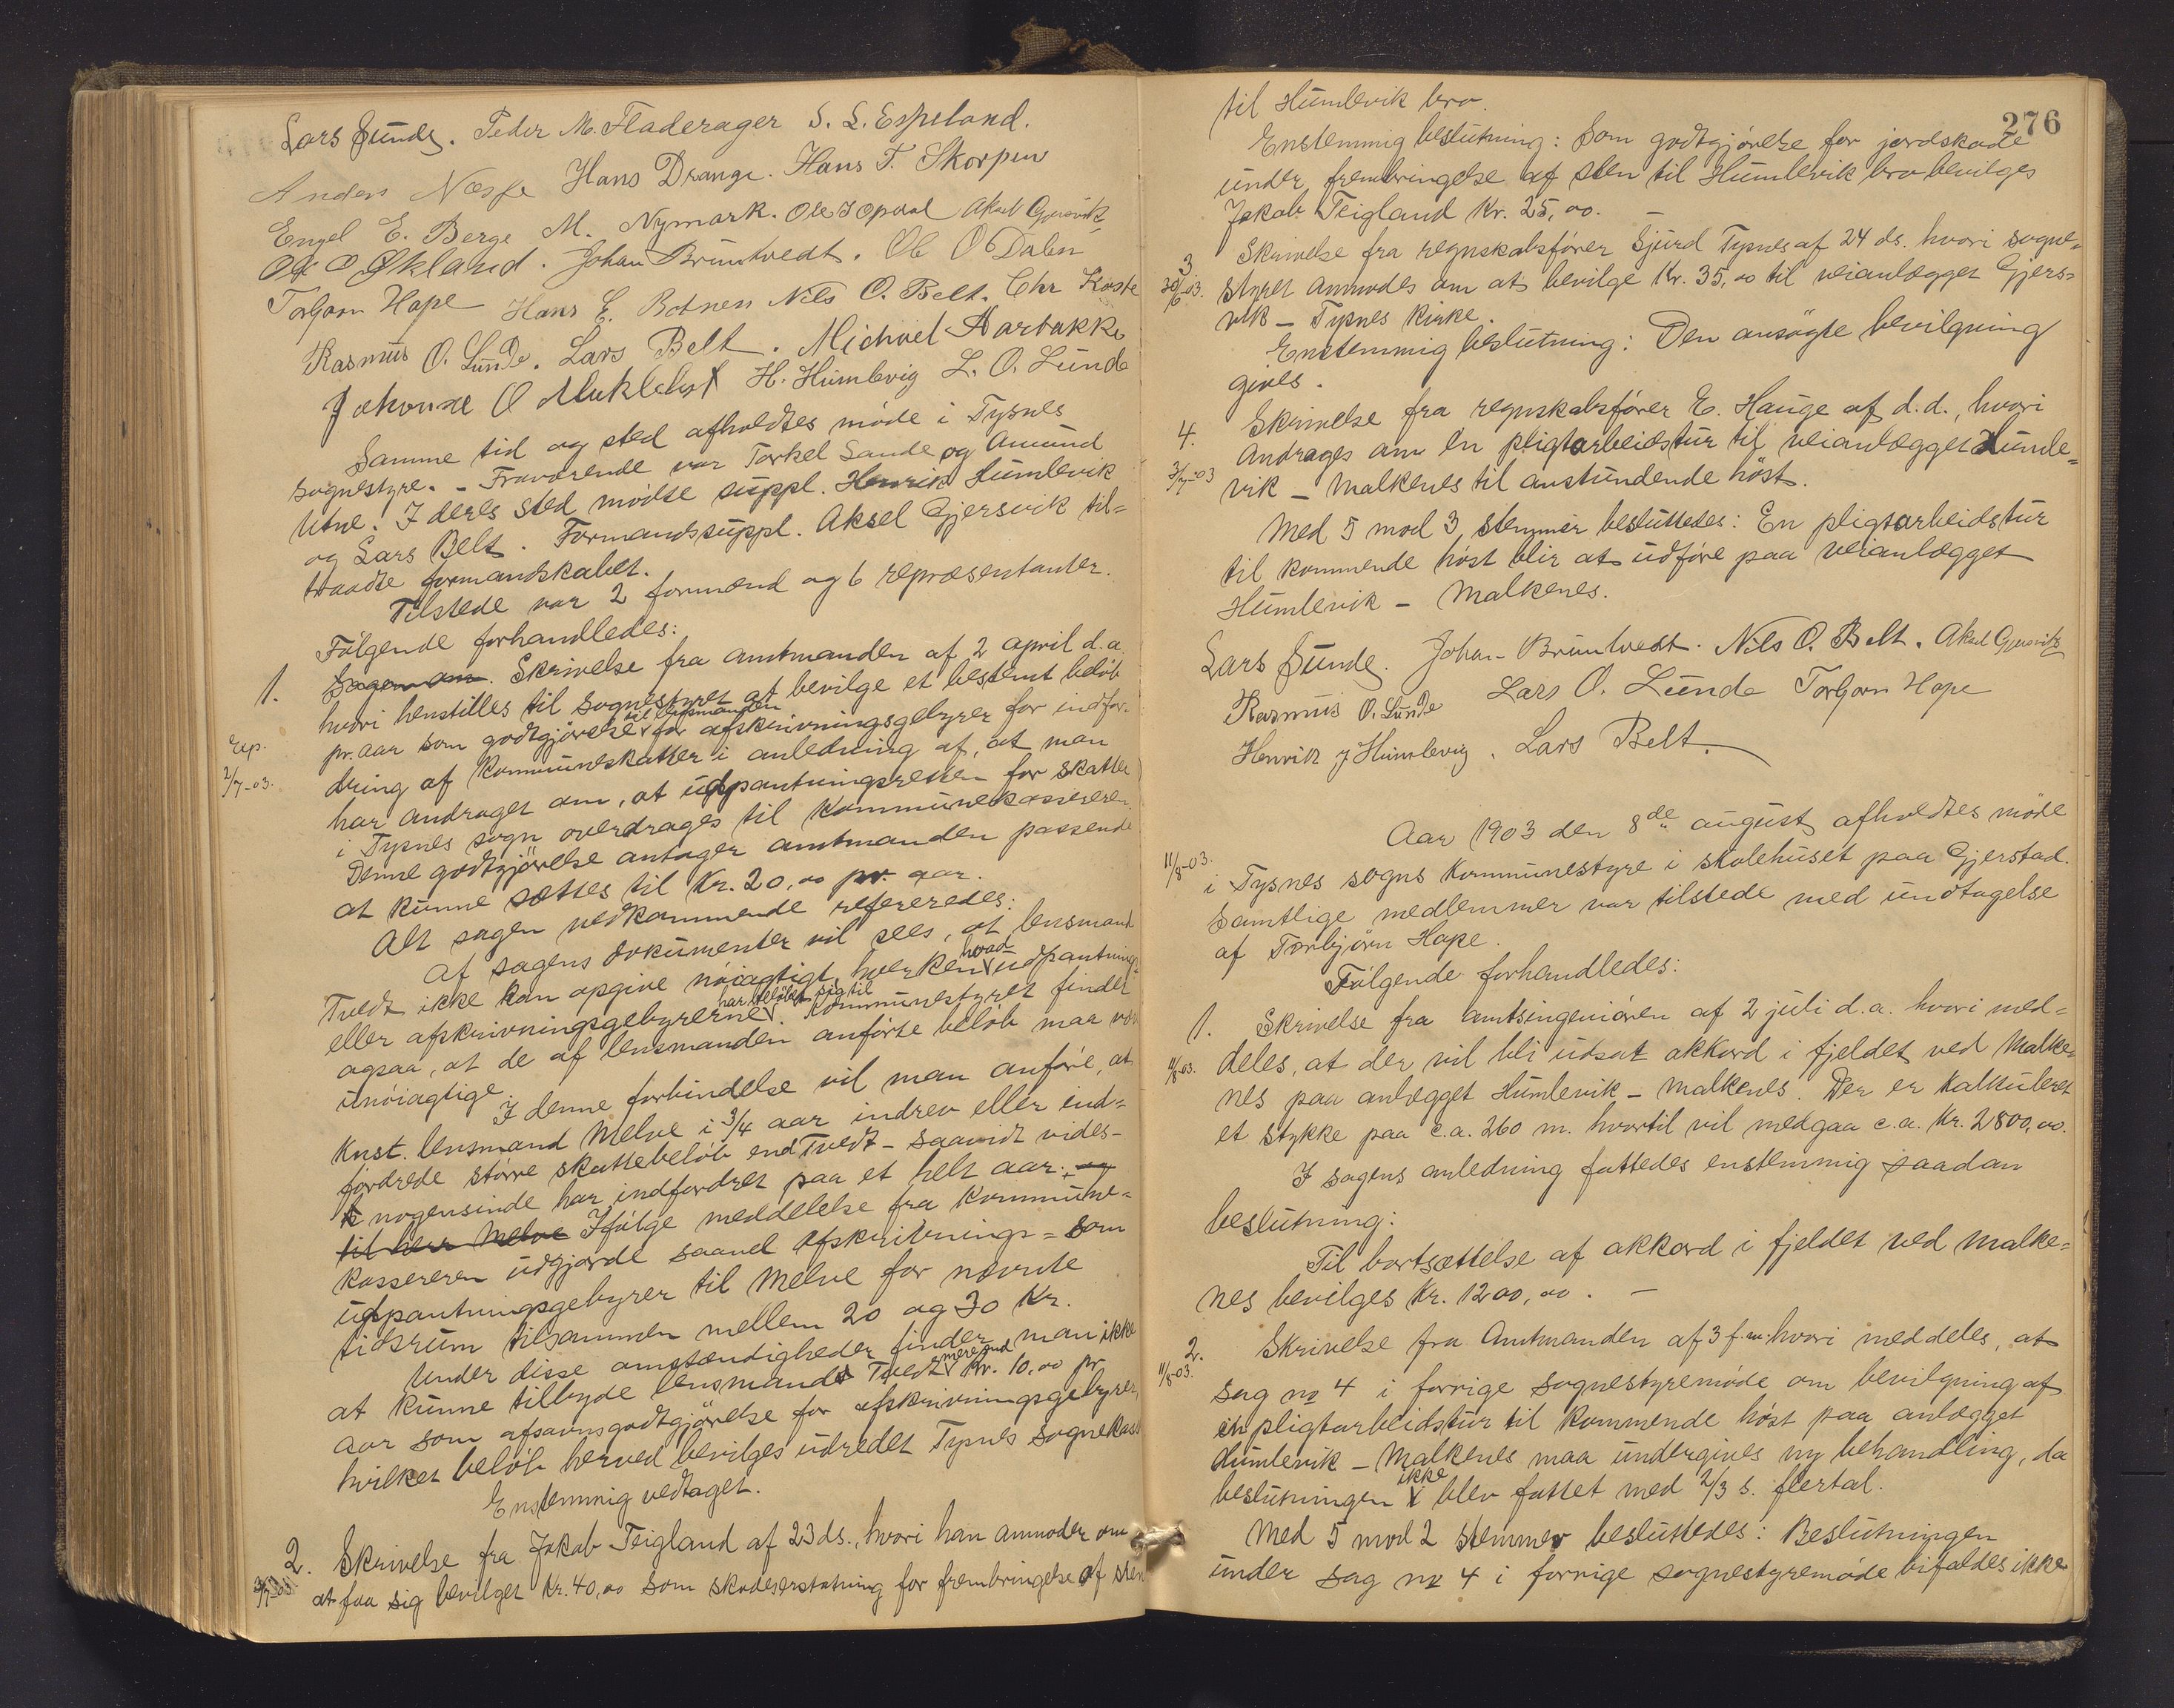 Lars Sunde. Peder M. Fladerager S. L. Espeland.
Anders Næsse Hans Drange. Hans T. Skorpen
Engel E. Berge M. Nymark. Ole J Opdal Aksel Gjersvik
Ole O Økland. Johan Bruntvedt. Ole O Dalen
Torbjørn Hope Hans E. Botnen Nils O. Belt. Chr Koste
Rasmus O. Lunde. Lars Belt. Michael Aarbakke
Johannes O Myklebust H. Humlevig L. O. Lunde
Samme tid og sted afholdtes møde i Tysnes
sognestyre. - Fraværende var Torkel Sande og Amund
Utne. I deres sted mødte suppl. Henrik Humlevik
og Lars Belt. Formandssuppl. Aksel Gjersvik til=
traadte formandskabet.
Tilstede var 2 formænd og 6 repræsentanter.
Følgende forhandledes:
1. Sagen om. Skrivelse fra amtmanden af 2 april d.a.
hvori henstilles til sognestyret at bevilge et bestemt beløb
pr. aar som godtgjørelse til lensmanden for afskrivningsgebyrer for indfor-
Exp. 2/7-03. dring af kommuneskatter i anledning af, at man
har andraget om, at udpantningsretten for skatter
i Tysnes sogn overdrages til kommunekassereren.
Denne godtgjørelse antager amtmanden passende
at kunne sættes til Kr. 20,00 pr. aar.
Alt sagen vedkommende refereredes:
Af sagens dokumenter vil sees, at lensmand
Tvedt ikke kan opgive nøiagtigt, hverken hvad udpantnings
eller afskrivningsgebyrerne har beløbet sig til. Kommunestyret finder
ogsaa, at de af lensmanden anførte beløb maa være
unøiagtige.
I denne forbindelse vil man anføre, at
Knst. lensmand Melve i 3/4 aar indrev eller ind=
fordrede større skattebeløb end Tvedt - saavidt vides -
nogensinde har indfordret paa et helt aar. og
til herr Melve Ifølge meddelelse fra Kommune=
kassereren udgjorde saavel afskrivnings= som
udpantningsgebyrer til Melve for nævnte
tidsrum tilsammen mellem 20 og 30 Kr.
Under disse omstændigheder finder man ikke
at kunne tilbyde lensmand Tvedt mere end Kr. 10,00 pr.
aar som afsavnsgodtgjørelse for afskrivningsgebyrer,
hvilket beløb herved bevilges udredet Tysnes sognekasse
Enstemmig vedtaget.
2. Skrivelse fra Jakob Teigland af 23 ds., hvori han anmoder om
3/7-03. at faa sig bevilget Kr. 40,00 som skadeserstatning for frembringelse af sten
276
til Humlevik bro.
Enstemmig beslutning: Som godtgjørelse for jordskade
under frembringelse af sten til Humlevik bro bevilges
Jakob Teigland Kr. 25,00. -
3 Skrivelse fra regnskabsfører Sjurd Tysnes af 24 ds. hvori sogne=
30/6-03. styret anmodes om at bevilge Kr. 35,00 til veianlægget Gjers=
vik - Tysnes kirke.
Enstemmig beslutning: Den ansøgte bevilgning
gives.
4. Skrivelse fra regnskabsfører E. Hauge af d.d., hvori
andrages om en pligtarbeidstur til veianlægget Humle=
3/7-03 vik - Malkenes til anstundende høst.
Med 5 mod 3 stemmer besluttedes: En pligtarbeidstur
til kommende høst blir at udføre paa veianlægget
Humlevik - Malkenes.
Lars Sunde. Johan Bruntvedt. Nils O. Belt. Aksel Gjersvik
Rasmus O. Lunde Lars O. Lunde Torbjørn Hope
Henrik J Humlevig. Lars Belt.
Aar 1903 den 8de august afholdtes møde
11/8-03. i Tysnes sogns kommunestyre i skolehuset paa Gjerstad.
Samtlige medlemmer var tilstede med undtagelse
af Torbjørn Hope.
Følgende forhandledes:
1. Skrivelse fra amtsingeniøren af 2 juli d.a. hvori med=
11/8-03. deles, at der vil bli udsat akkord i fjeldet ved Malke=
nes paa anlægget Humlevik - Malkenes. Der er kalkuleret
et stykke paa c.a. 260 m. hvortil vil medgaa c.a. Kr. 2800,00.
I sagens anledning fattedes enstemmig saadan
beslutning:
Til bortsættelse af akkord i fjeldet ved Malke=
nes bevilges Kr. 1200,00. -
2. Skrivelse fra Amtmanden af 3 f.m. hvori meddeles, at
11/8-03. sag no 4 i forrige sognestyremøde om bevilgning af
en pligtarbeidstur til kommende høst paa anlægget
Humlevik - Malkenes maa undergives ny behandling, da
beslutningen ikke blev fattet med 2/3 s. flertal.
Med 5 mod 2 stemmer besluttedes: Beslutningen
under sag no 4 i forrige sognestyremøde bifaldes ikke